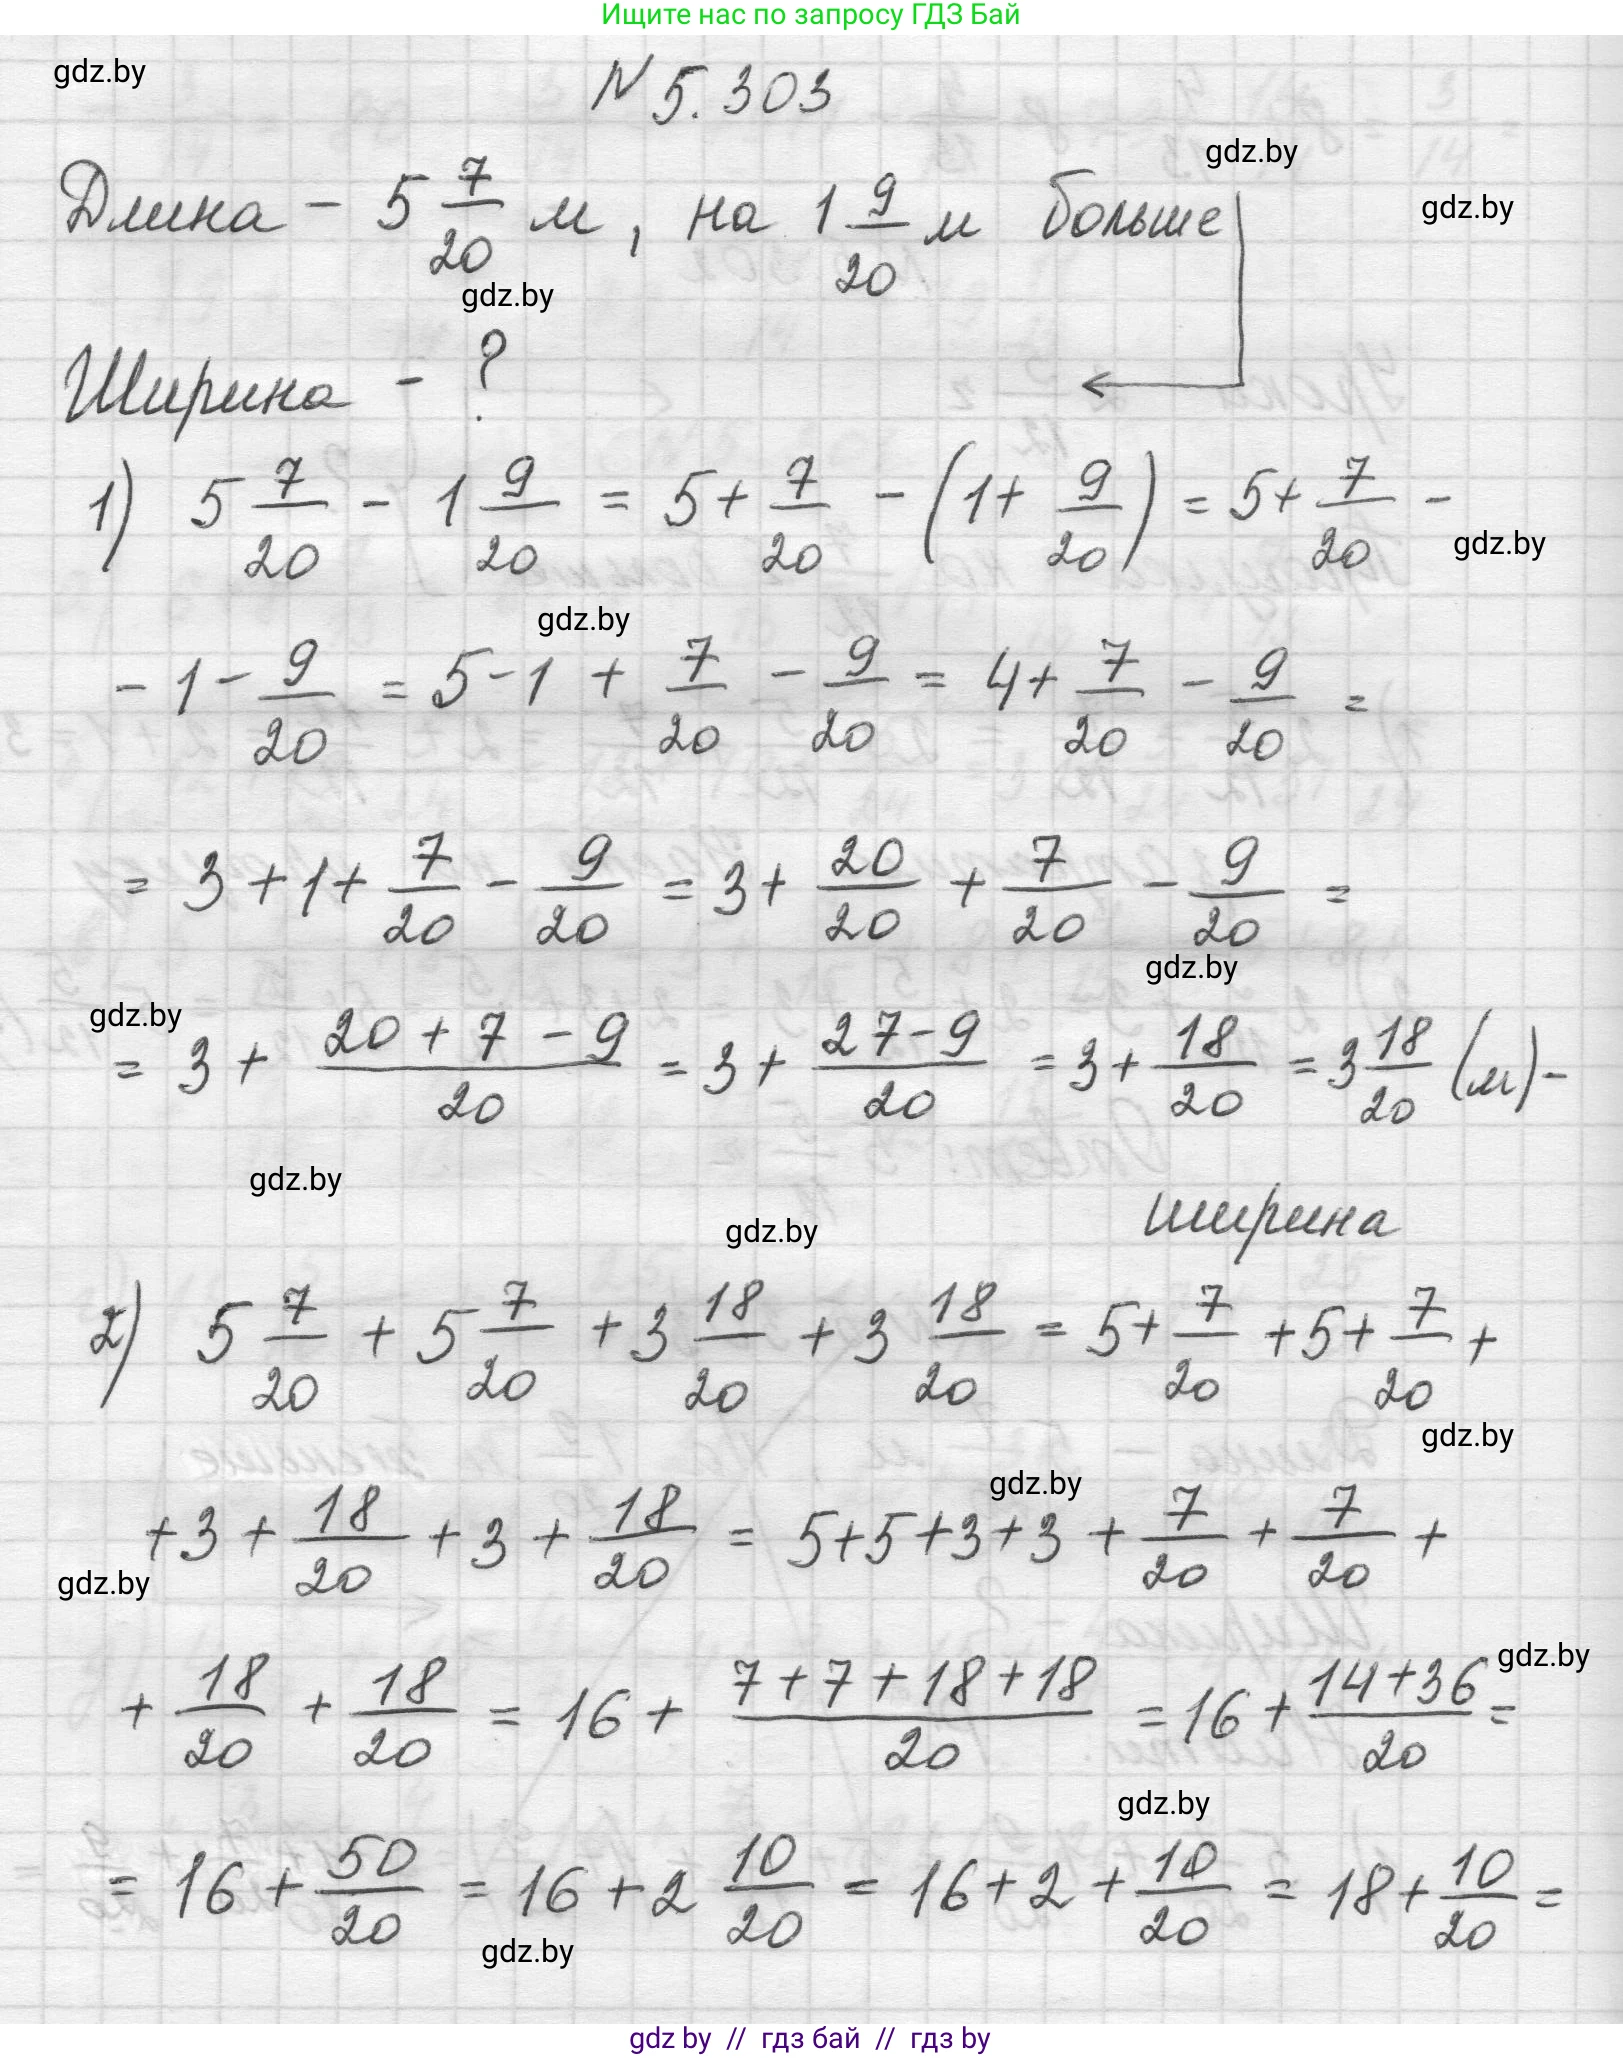 Ищите нас по запросу ГДЗ Бай
gdz.by
N 5.303
gdz.by
Длина - 5 7/20 м, на 1 9/20 м больше
gdz.by
gdz.by
Ширина - ?
1) 5 7/20 - 1 9/20 = 5 + 7/20 - (1 + 9/20) = 5 + 7/20 -
gdz.by
gdz.by
- 1 - 9/20 = 5 - 1 + 7/20 - 9/20 = 4 + 7/20 - 9/20 =
= 3 + 1 + 7/20 - 9/20 = 3 + 20/20 + 7/20 - 9/20 =
gdz.by
gdz.by
= 3 + (20 + 7 - 9)/20 = 3 + (27 - 9)/20 = 3 + 18/20 = 3 18/20 (м) -
gdz.by
ширина
gdz.by
2) 5 7/20 + 5 7/20 + 3 18/20 + 3 18/20 = 5 + 7/20 + 5 + 7/20 +
gdz.by
gdz.by
+ 3 + 18/20 + 3 + 18/20 = 5 + 5 + 3 + 3 + 7/20 + 7/20 +
gdz.by
gdz.by
+ 18/20 + 18/20 = 16 + (7 + 7 + 18 + 18)/20 = 16 + (14 + 36)/20 =
gdz.by
= 16 + 50/20 = 16 + 2 10/20 = 16 + 2 + 10/20 = 18 + 10/20 =
gdz.by
gdz by // гдз бай // гдз by